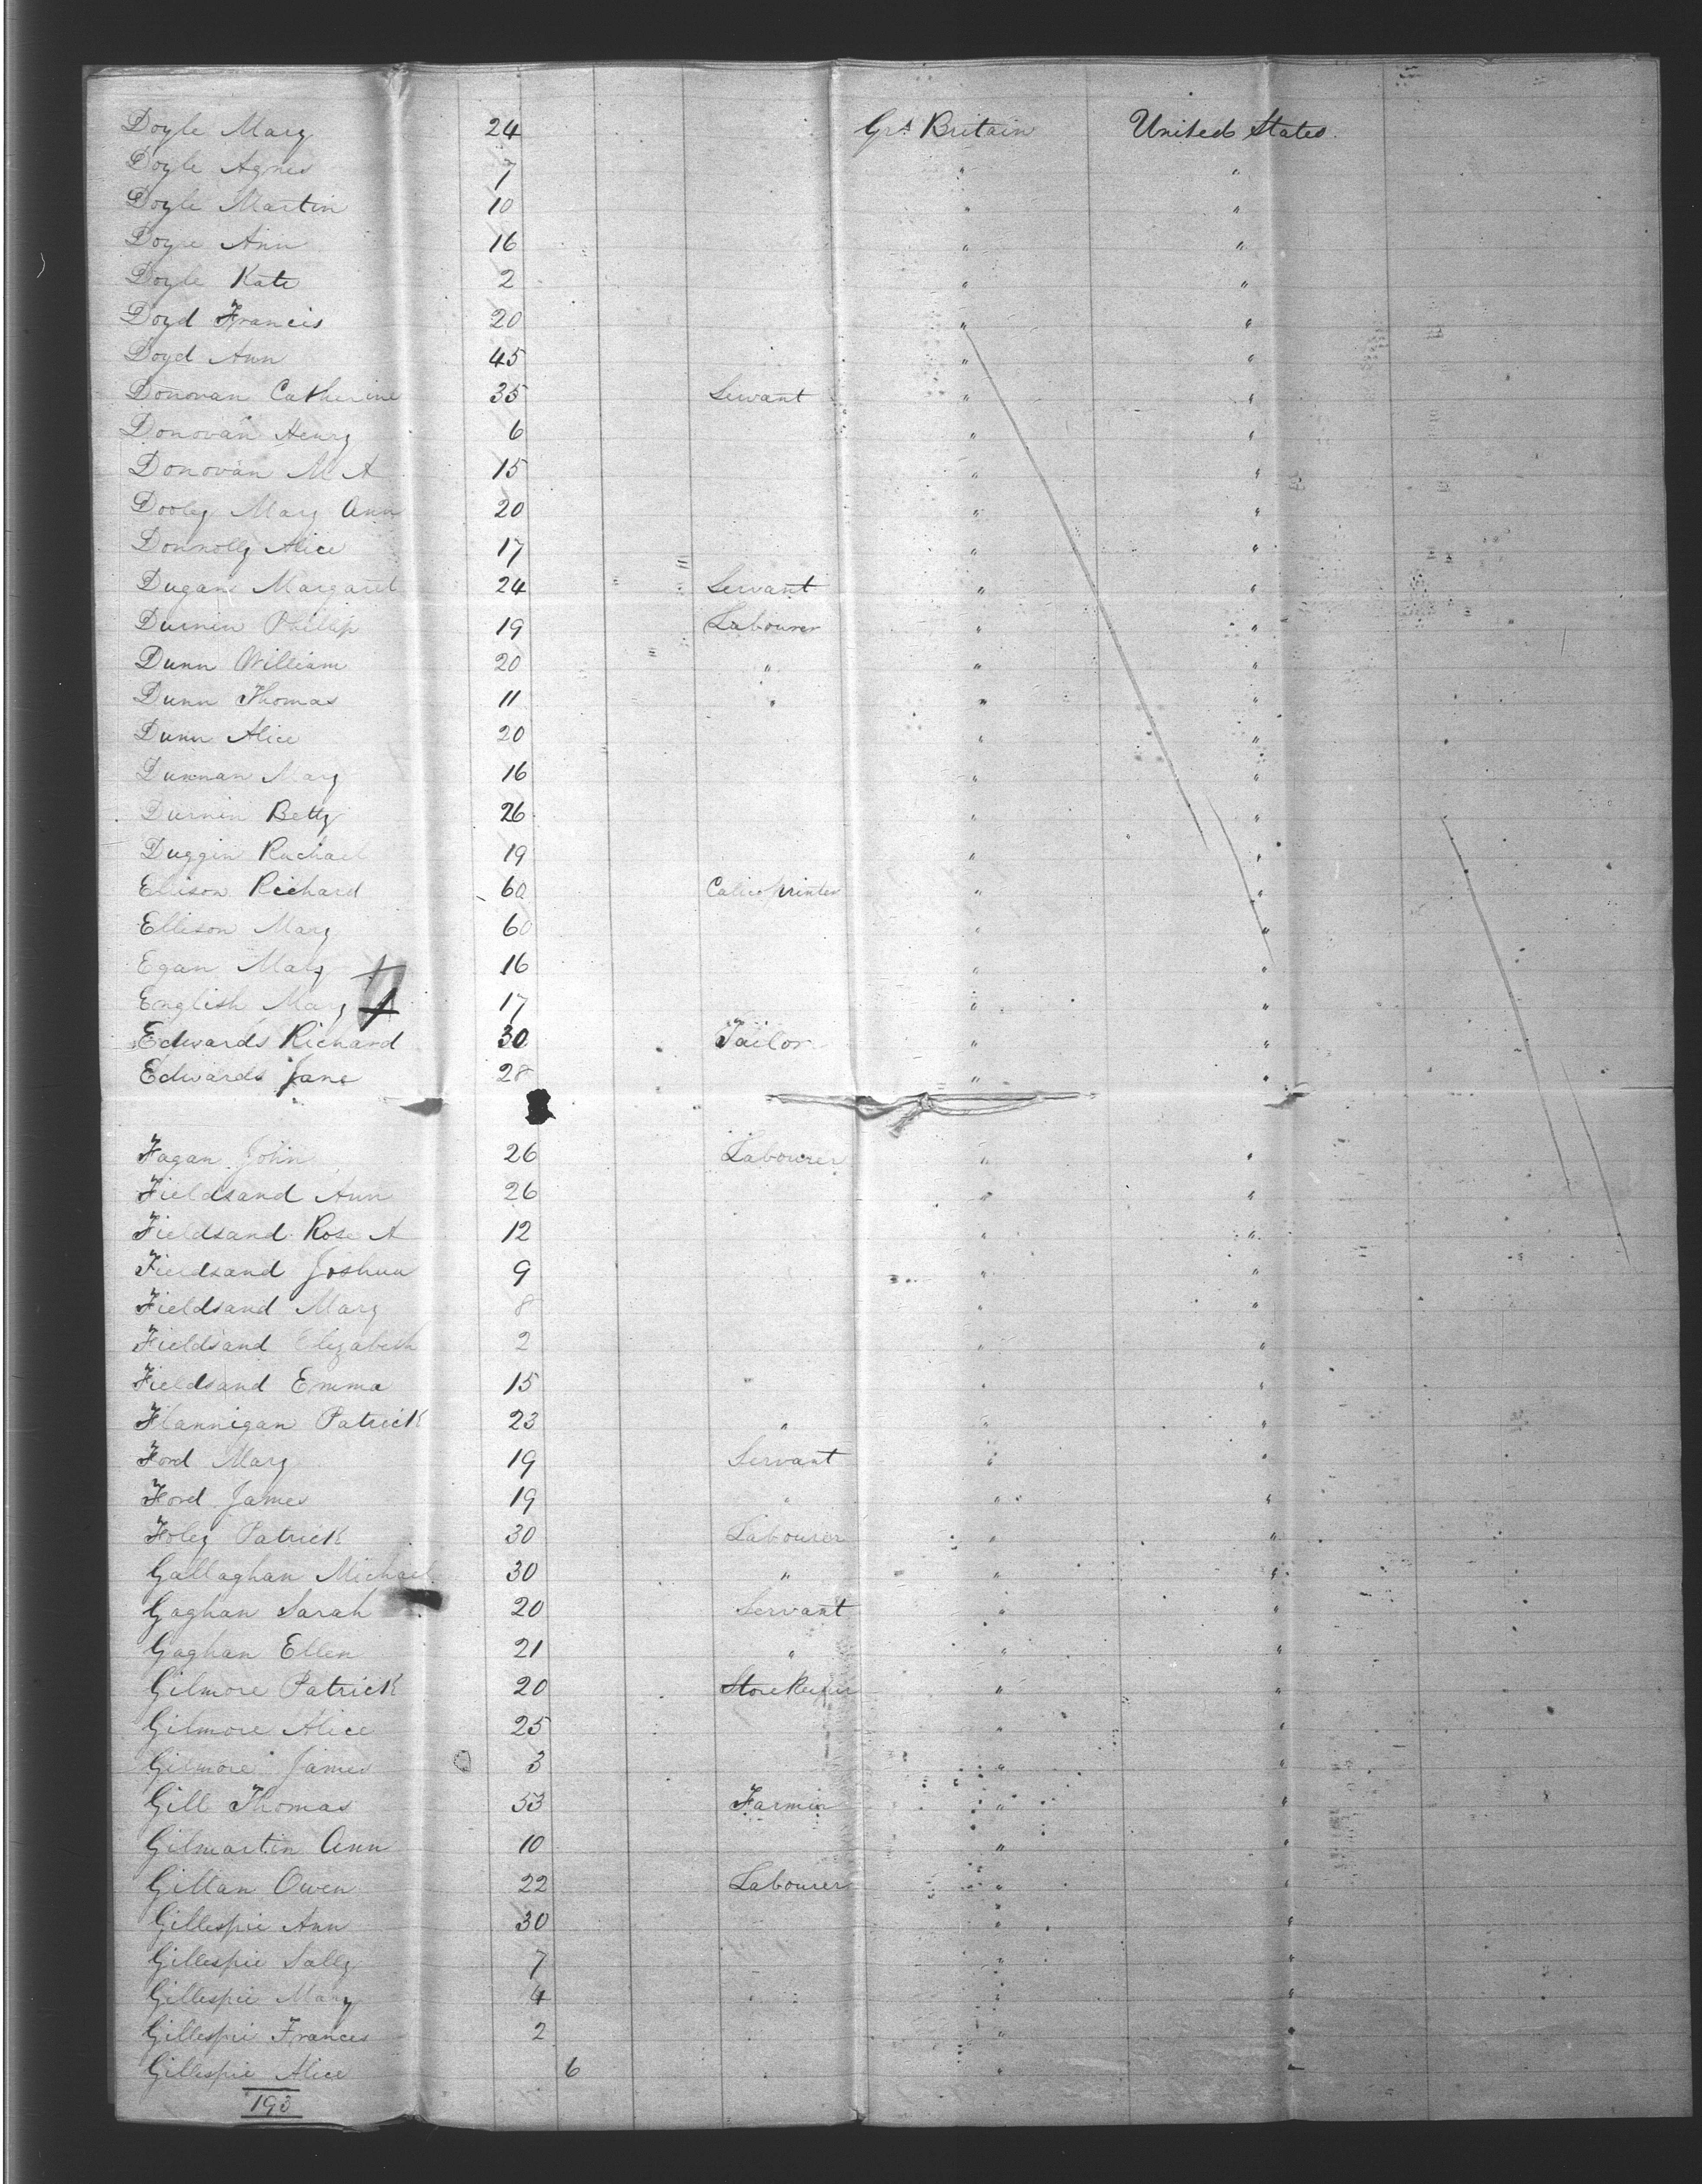 Doyle Mary 24 Grt Britain United States
Doyle Agnes 7 " "
Doyle Martin 10 " "
Doyle Ann 16 " "
Doyle Kate 2 " "
Doyd Francis 20 " "
Doyd Ann 45 " "
Donovan Catherine 35 Servant " "
Donovan Henry 6 " "
Donovan M A 15 " "
Dooley Mary Ann 20 " "
Donnolly Alice 17 " "
Dugan Margaret 24 Servant " "
Durnin Phillip 19 Labourer " "
Dunn William 20 " " "
Dunn Thomas 11 " " "
Dunn Alice 20 " "
Dunnan Mary 16 " "
Durnin Betty 26 " "
Duggin Rachael 19 " "
Ellison Richard 60 Calico printer " "
Ellison Mary 60 " "
Egan Mary 16 " "
English Mary 17 " "
Edwards Richard 30 Tailor " "
Edwards Jane 28 " "
Fagan John 26 Labourer " "
Fieldsand Ann 26 " "
Fieldsand Rose A 12 " "
Fieldsand Joshua 9 " "
Fieldsand Mary 8 " "
Fieldsand Elizabeth 2 " "
Fieldsand Emma 15 " "
Flannigan Patrick 23 " " "
Ford Mary 19 Servant " "
Ford James 19 " " "
Foley Patrick 30 Labourer " "
Gallaghan Michael 30 " " "
Gaghan Sarah 20 Servant " "
Gaghan Ellen 21 " " "
Gilmore Patrick 20 Storekeeper " "
Gilmore Alice 25 " "
Gilmore James 3 " "
Gill Thomas 53 Farmer " "
Gilmartin Ann 10 " "
Gillan Owen 22 Labourer " "
Gillespie Ann 30 " "
Gillespie Sally 7 " "
Gillespie Mary 4 " "
Gillespie Frances 2 " "
Gillespie Alice 6 " "
193